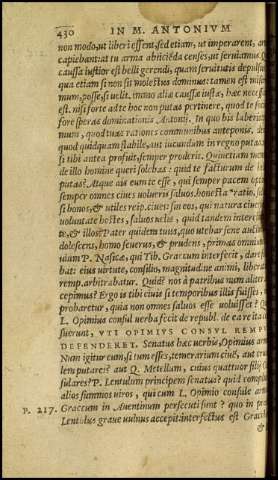 430 IN M. ANTONIVM
non modo, ut liberi essent, sed etiam, ut imperarent, ar
capiebant: at tu arma abiiciēda censes, ut seruiamus. Q
caussa iustior est belli gerendi, quam seruitutis depulsio
qua etiam si non sit molestus dominus: tamen est miser
mum, posse, si uelit. immo aliæ caussæ iustæ, hæc necessa
est. nisi forte ad te hoc non putas pertinere, quod te socium
fore speras dominationis Antonii. In quo bis laberis
num, quod tuas rationes communibus anteponis. de
quod quidquam stabile, aut iucundum in regno putas.
si tibi antea profuit, semper proderit. Quinetiam
de illo homine queri solebas: quid te facturum de
putas? Atque ais eum te esse, qui semper pacem opta
semper omnes ciues uolueris saluos. honesta oratio, sed
si bonos, & utiles reip. ciues: sin eos, qui natura ciues
uoluntate hostes, saluos uelis, quid tandem interest
te, & illos? Pater quidem tuus, quo utebar sene auctore
dolescens, homo seuerus, & prudens, primas omnium
uium P. Nasicæ, qui Tib. Graccum interfecit, dare
bat: eius uirtute, consilio, magnitudine animi, liberatam
remp. arbitrabatur. Quid? nos à patribus num aliter
cepimus? Ergo is tibi ciuis si temporibus illis fuisses,
probaretur, quia non omnes saluos esse uoluisset? Q
L. Opimius consul uerba fecit de republ. de ea re ita
suerunt, VTI OPIMIVS CONSVL REMP
DEFENDERET. Senatus hæc uerbis, Opimius armis
Num igitur eum, si tum esses, temerarium ciuē, aut cru
lem putares? aut Q. Metellum, cuius quattuor filij
sulares? P. Lentulum principem senatus? quid complures
alios summos uiros, qui cum L. Opimio consule armati
P. 217. Graccum in Auentinum persecuti sunt? quo in prœ
Lentulus graue uulnus accepit: interfectus est Graccus
&